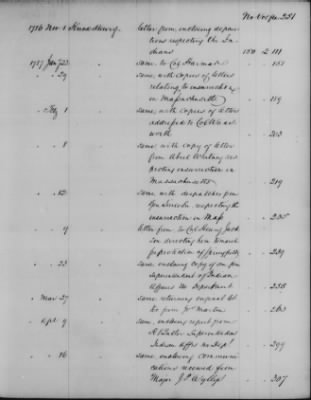 No. 150 p. 251
1786 Nov 1 Knox Henry letter from, enclosing deposi
tions respecting the In
dians 150 2 111
1787 Jany 23 same, to Col Harmar 151
" " 29 same, with copies of letters
relating to insurrection
in Massachusetts 119
" Feb 1 same, with copies of letters
addressed to Col Wads
worth 203
" " 8 same, with copy of letter
from
insurrection in
Massachusetts 219
" " same with despatches from
Gen Lincoln respecting the
insurrection in Mass 235
" " 9 letter from, to Col Henry Jack
son directing him to march
for protection of Springfield 239
" " 23 same enclosing copy of
Superintendent of Indian
Affairs No Department 255
" Mar 27 same, returning original let
ter from Jno Martin 263
" Apl. 9 same, enclosing report from
Superintendent
Indian Affrs No Dept 299
" " 16 same, enclosing communi
cations received from
Major Jno P Wyllys 307